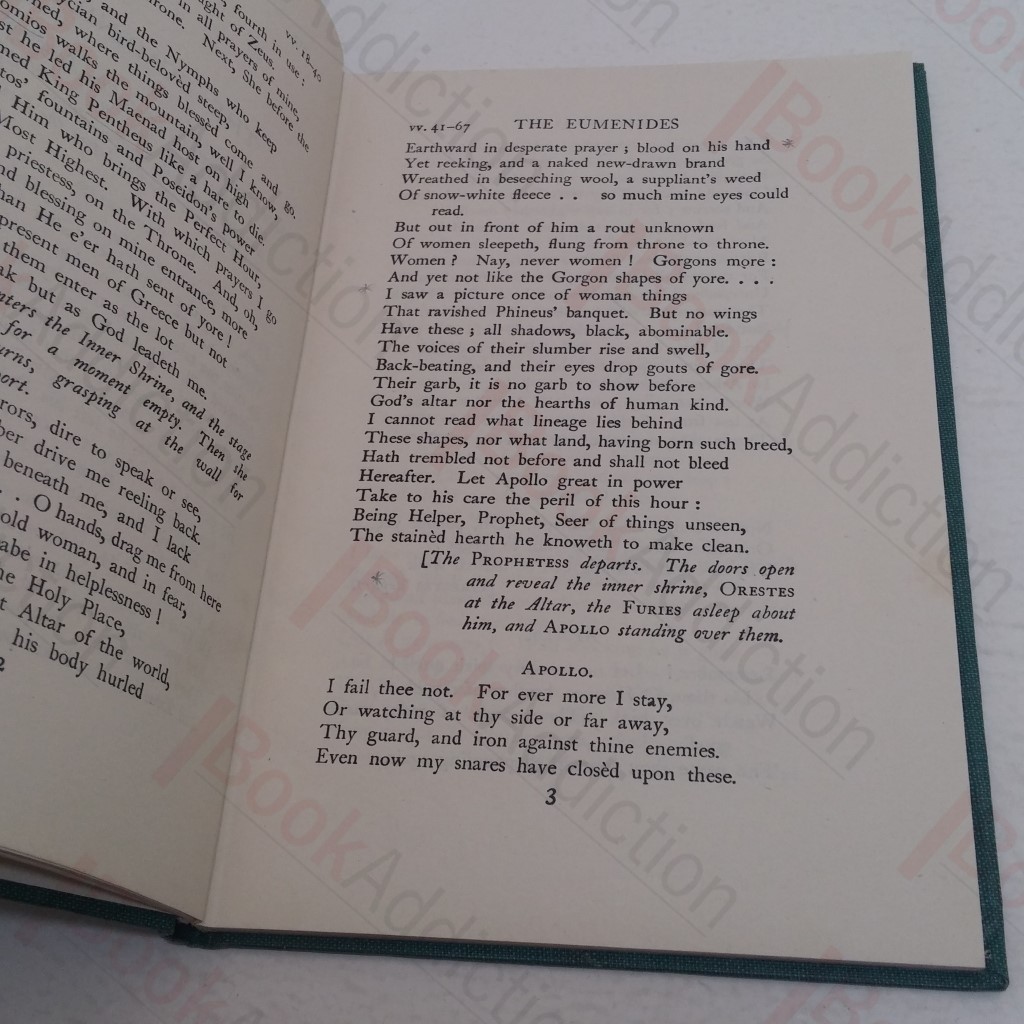 vv. 18-40
fourth in use:
ght of Zeus.
in all prayers of mine,
rone. Next, She before the
and the Nymphs who keep
ycian bird-belovèd steep,
ned, where things blessèd come and go.
omios walks the mountain, well I know,
st he led his Maenad host on high
med King Pentheus like a hare to die.
tos' fountains and Poseidon's power
Him who brings the Perfect Hour,
Most Highest. With which prayers I go
priestess, on the Throne. And, oh,
nd blessing on mine entrance, more
han He e'er hath sent of yore!
present men of Greece but not
them enter as the lot
ak but as God leadeth me.
nters the Inner Shrine, and the stage
for a moment empty. Then she
urns, grasping at the wall for
port.
rors, dire to speak or see,
ber drive me reeling back.
beneath me, and I lack
. . O hands, drag me from here
old woman, and in fear,
abe in helplessness!
he Holy Place,
t Altar of the world,
his body hurled
2
vv. 41-67 THE EUMENIDES
Earthward in desperate prayer; blood on his hand
Yet reeking, and a naked new-drawn brand
Wreathed in beseeching wool, a suppliant's weed
Of snow-white fleece . . so much mine eyes could
read.
But out in front of him a rout unknown
Of women sleepeth, flung from throne to throne.
Women? Nay, never women! Gorgons more:
And yet not like the Gorgon shapes of yore. . . .
I saw a picture once of woman things
That ravished Phineus' banquet. But no wings
Have these; all shadows, black, abominable.
The voices of their slumber rise and swell,
Back-beating, and their eyes drop gouts of gore.
Their garb, it is no garb to show before
God's altar nor the hearths of human kind.
I cannot read what lineage lies behind
These shapes, nor what land, having born such breed,
Hath trembled not before and shall not bleed
Hereafter. Let Apollo great in power
Take to his care the peril of this hour:
Being Helper, Prophet, Seer of things unseen,
The stainèd hearth he knoweth to make clean.
[The PROPHETESS departs. The doors open
and reveal the inner shrine, ORESTES
at the Altar, the FURIES asleep about
him, and APOLLO standing over them.
APOLLO.
I fail thee not. For ever more I stay,
Or watching at thy side or far away,
Thy guard, and iron against thine enemies.
Even now my snares have closèd upon these.
3
BookAddiction